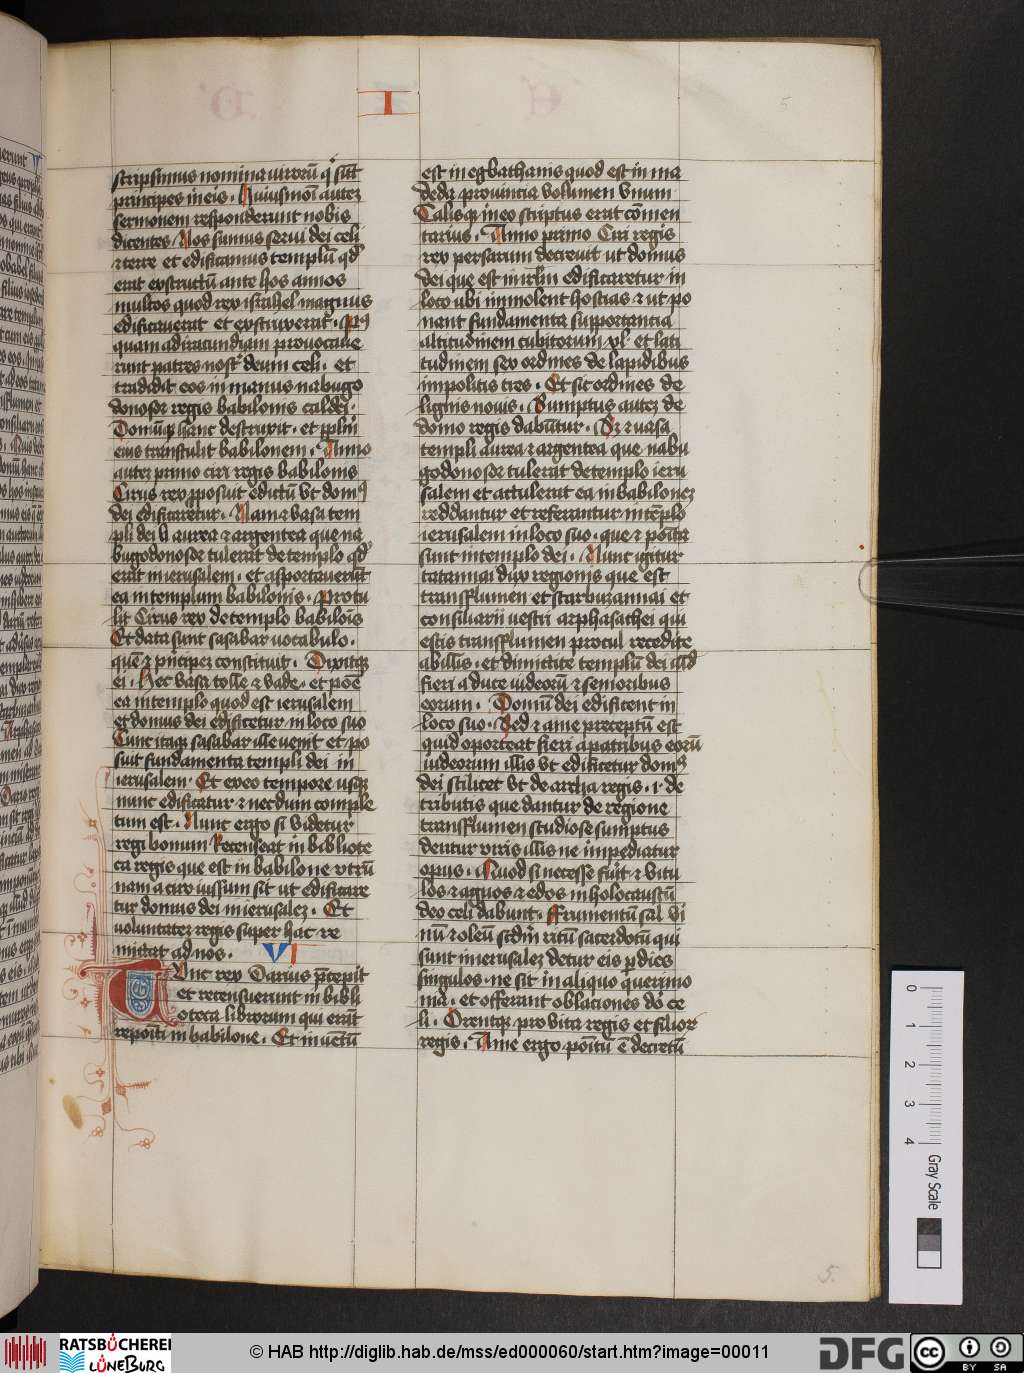 I
5
scripsimus nomina uirorū q̇ sūt
principes in eis. Huiusmōi autez
sermonem responderunt nobis
dicentes. Nos sumus serui dei celi
⁊ terre et edificamus templū qd̛
erat exstructū ante hos annos
multos quod rex israhel magnus
edificauerat et exstruxerat. Pꝰ
quam ad iracundiam prouocaue
runt patres nostͥ deum celi. et
tradidit eos in manus nabugo
donosor regis babilonis caldei.
Domūqꝫ hanc destruxit. et pplm̄
eius transtulit babilonem. Anno
autez primo ciri regis babilonis
Cirus rex ꝓposuit edictū vt domꝰ
dei edificaretur. Nam ⁊ vasa tem
pli dei aurea ⁊ argentea que na
bugodonosor tulerat de templo qd̛
erat in ierusalem. et asportauerat
ea in templum babilonis. Protu
lit Cirus rex de templo babilōis
Et data sunt sasabar uocabulo.
quē ⁊ pͥncipez constituit. Dixitqꝫ
ei. Hec vasa tolle ⁊ vade. et pone
ea in templo quod est ierusalem
et domus dei edificetur in loco suo
Tunc itaqꝫ sasabar ille uenit et po
suit fundamenta templi dei in
ierusalem. Et ex eo tempore usqꝫ
nunc edificatur ⁊ necdum comple
tum est. Nunc ergo si videtur
regi bonum Recenseat in bibliote
ca regis que est in babilone vtrū
nam a ciro iussum sit ut edificare
tur domus dei in ierusalez. Et
uoluntatez regis super hac re
mittat ad nos. VI
Tunc rex Darius p̄cepit
et recensuerunt in bibli
oteca librorum qui erāt
repoīti in babilone. Et inuētū
est in egbathanis quod est in ma
deda prouincia volumen vnum
Talisqꝫ in eo scriptus erat cōmen
tarius. Anno primo Ciri regis
rex persarum decreuit ut domus
dei que est in irlm̄ edificaretur in
loco ubi immolent hostias ⁊ ut po
nant fundamenta supportantia
altitudinem cubitorum xlͣ et lati
tudinem sex ordines de lapidibus
impolitis tres. Et sic ordines de
lignis nouis. Sumptus autez de
domo regis dabūtur. Sz ⁊ uasa
templi aurea ⁊ argentea que nabu
godonosor tulerat de templo ieru
salem et attulerat ea in babilonez
reddantur et referantur in tēplo
ierusalem in loco suo. que ⁊ poīta
sunt in templo dei. Nunc igitur
tatannai dux regionis que est
transflumen et starbuzannai et
consiliarii uestri arphasathei qui
estis transflumen procul recedite
ab illis. et dimittite templū dei illd̛
fieri a duce iudeorū ⁊ senioribus
eorum. Domū dei edificent in
loco suo. Sed ⁊ a me preceptū est
quid oporteat fieri a patribus eorū
iudeorum illis vt edificetur domꝰ
dei scilicet vt de archa regis .i. de
tributis que dantur de regione
transflumen studiose sumptus
dentur viris illis ne impediatur
opus. Quod si necesse fuīt ⁊ vitu
los ⁊ agnos ⁊ edos in holocaustū
deo celi dabunt. Frumentū sal vi
nū ⁊ oleū scdm̄ ritū sacerdotū qui
sunt in ierusalez detur eis ꝑ dies
singulos. ne sit in aliquo querimo
nia. et offerant oblaciones dō ce
li. Orentqꝫ pro vita regis et filior
regis. A me ergo poītū ē decretū
5.
0 1 2 3 4
Gray Scale
RATSBÜCHEREI
LÜNEBURG
© HAB http://diglib.hab.de/mss/ed000060/start.htm?image=00011
DFG
cc BY SA